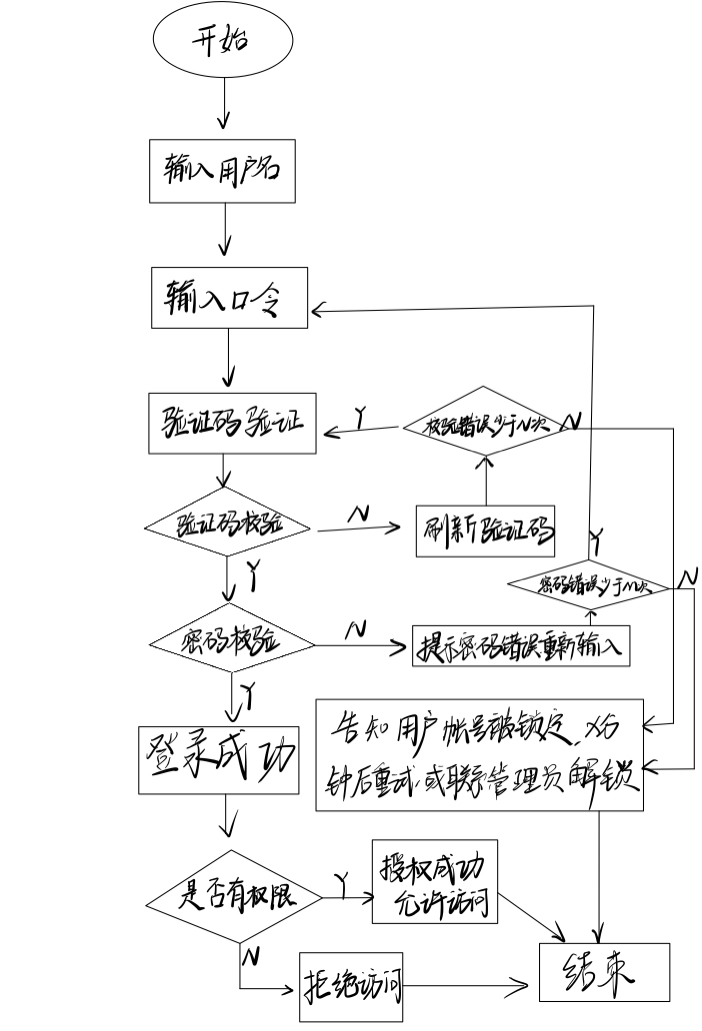 开始
输入用户名
输入口令
验证码验证
Y
校验错误少于N次
N
验证码校验
N
刷新验证码
Y
Y
密码错误少于N次
N
密码校验
N
提示密码错误重新输入
Y
登录成功
告知用户帐号被锁定,X分
钟后重试,或联系管理员解锁
是否有权限
Y
授权成功
允许访问
N
拒绝访问
结束